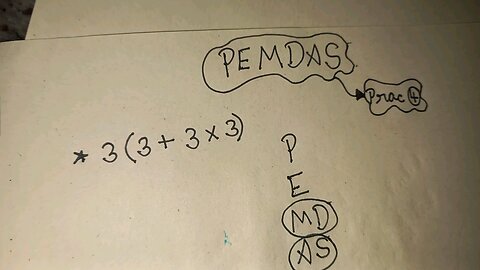 PEMDAS
Prac 4
* 3(3+3×3)
P
E
MD
AS